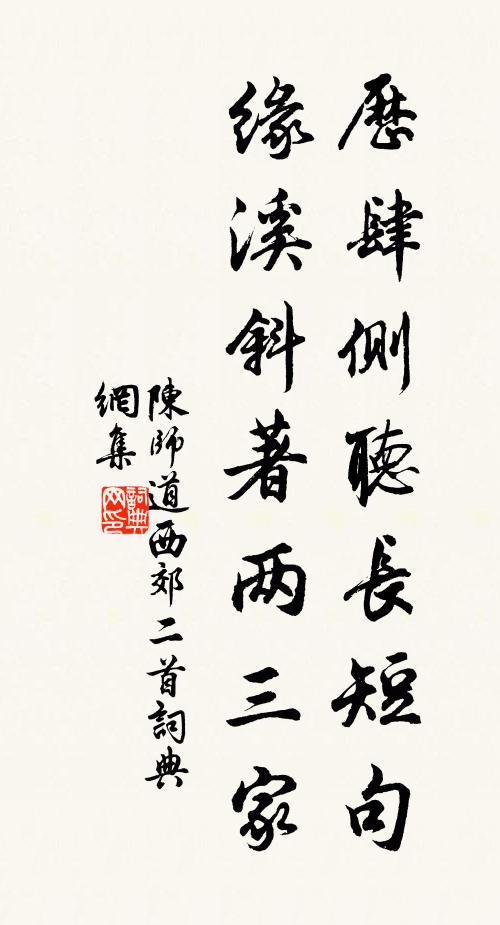 歷肆側聽長短句
緣溪斜著兩三家
陳師道西郊二首詞典
網集
詞典網印